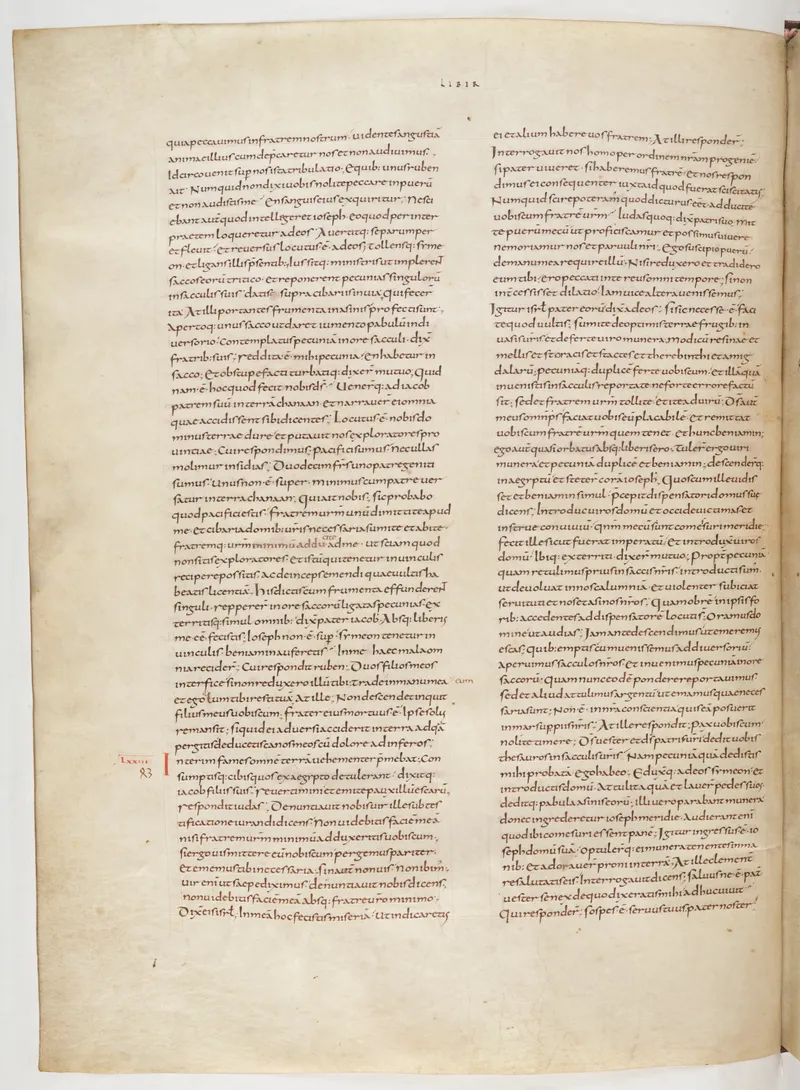 LIBER
quia peccauimus in fratrem nostrum. uidentes angustiā
animae illius cum deprecaretur nos et non audiuimus.
Idcirco uenit sup nos ista tribulatio. E quib; unus ruben
ait. Numquid non dixi uobis nolite peccare in puerū
et non audistis me. En sanguis eius exquiritur. Nescie
bant autē quod intellegeret ioseph. eo quod per inter
praetem loqueretur ad eos. Auertitq; se parumper
et fleuit. et reuersus locutus ē ad eos; Tollensq; syme
on. et ligans illis psentib; Iussitq; ministris ut implerent
saccos eorū tritico. et reponerent pecunias singulorū
in sacculis suis. datis supra cibariis in uia. qui fecer
ita. At illi portantes frumenta in asinis profecti sunt.
Apertoq; unus sacco ut daret iumento pabulū in di
uersorio. contemplatus pecuniā in ore sacculi. dix
fratrib; suis; reddita ē mihi pecunia. en habetur in
sacco; et obstupefacti turbatiq; dixer mutuo. Quid
nam ē hoc quod fecit nobis ds. Uenerq; ad iacob
patrem suū in terrā chanaan. et narrauer ei omnia
quae accidissent sibi dicentes; Locutus ē nobis do
minus terrae dure. et putauit nos exploratores pro
uinciae. Cui respondimus; pacifici sumus. nec ullas
molimur insidias. Duodecim frs uno patre geniti
sumus. Unus non ē super. minimus cum patre uer
satur in terra chanaan; Qui ait nobis; sic probabo
quod pacifici estis. fratrem urm unū dimittite apud
me. et cibaria domib; uris necessaria sumite et abite.
fratremq; urm minimū adducite ad me. ut sciam quod
non sitis exploratores. et istū qui tenetur in uinculis
recipere possitis. ac deinceps emendi quae uultis ha
beatis licentiā. His dictis cum frumenta effunderent
singuli. repperer in ore saccorū ligatas pecunias. ex
territisq; simul omnib; dix pater iacob. Absq; liberis
me eē fecistis. Ioseph non ē sup. symeon tenetur in
uinculis. beniamin auferetis. In me haec mala om
nia recider. Cui respondit ruben. Duos filios meos
interfice si non reduxero illū tibi. trade in manu mea
cum
et ego eum tibi restituā. At ille; Non descendet inquit
filius meus uobiscum. frater eius mortuus ē. Ipse solus
remansit; si quid ei aduersi acciderit in terra ad quā
pergitis. deducetis canos meos cū dolore ad inferos.
Interim fames omnē terrā uehementer pmebat. Con
83
sumptisq; cibis quos ex aegypto detulerant. dixitq;
iacob filiis suis; reuertimini et emite pauxillū escarū.
respondit iudas. Denuntiauit nobis uir ille sub tes
tificatione iurandi dicens; Non uidebitis faciē meā
nisi fratrem urm minimū adduxeritis uobiscum.
si ergo uis mittere eū nobiscum pergemus pariter.
et ememus tibi necessaria. sin autē non uis non ibim.
uir enim ut saepe diximus denuntiauit nobis dicens.
non uidebitis faciē meā absq; fratre uro minimo.
Dix eis isrl. In meā hoc fecistis miseriā. ut indicaretis
ei et alium habere uos fratrem; At illi responder;
Interrogauit nos homo per ordinem nrām progeniē.
si pater uiueret. si haberemus fratrē. et nos respon
dimus ei consequenter iuxta id quod fuerat sciscitatus.
Numquid scire poteramus quod dicturus eēt adducite
uobiscum fratrē urm. Iudas quoq; dix patri suo. mit
te puerū mecū ut proficiscamur et possimus uiuere.
ne moriamur nos et paruuli nri. Ego suscipio puerū.
de manu mea require illū. Nisi reduxero et tradidero
eum tibi. ero peccati in te reus omni tempore; si non
intcessisset dilatio. Iam uice altera uenissemus;
Igitur isrl pater eorū dix ad eos; si sic necesse ē faci
te quod uultis; sumite de optimis terrae frugib; in
uasis uris. et deferte uiro munera. modicū resinae et
mellis. et storacis et stactes. et therebinthi et amig
dalarū; pecuniāq; duplicē ferte uobiscum. et illā quā
inuenistis in sacculis reportate. ne forte errore factū
sit; sed et fratrem urm tollite. et ite ad uirū; Ds aut
meus omnips faciat uobis eū placabilē. et remittat
uobiscum fratrē urm quem tenet. et hunc beniamin;
ego aut quasi orbatus absq; liberis ero. Tuler ergo uiri
munera et pecuniā duplicē et beniamin; descenderq;
in aegyptū et steter corā ioseph; Quos cum ille uidis
set et beniamin simul. pcepit dispensatori domus suę
dicens; Introduc uiros domū et occide uictimas et
instrue conuiuiū. qnm mecū sunt comesuri meridie.
fecit ille sicut fuerat imperatū; et introduxit uiros
domū. Ibiq; exterriti. dixer mutuo; Propt pecuniā
quam retulimus prius in saccis nris. introducti sum.
ut deuoluat in nos calumniā. et uiolenter subiciat
seruituti et nos et asinos nros. Quam obrē in ipsis fo
rib; accedentes ad dispensatorē locuti s. Oramus do
mine ut audias; Iam ante descendimus ut emerem
escas. quib; emptis cum uenissemus ad diuersoriū.
aperuimus sacculos nros. et inuenimus pecuniā in ore
saccorū. quam nunc eodē pondere reportauim.
sed et aliud attulimus argentū. ut emamus quae neces
saria sunt; Non ē in nra conscientia quis eā posuerit
in marsuppiis nris; At ille respondit; Pax uobiscum.
nolite timere; Ds uester et ds patris uri dedit uobis
thesauros in sacculis uris. Nam pecuniā quā dedistis
mihi probatā ego habeo. Eduxq; ad eos symeon. et
introductis domū. Attulit aquā et lauer pedes suos
deditq; pabula asinis eorū; illi uero parabant munera
donec ingrederetur ioseph meridie. Audierant enī
quod ibi comesuri essent pane; Igitur ingressus ē io
seph domū suā. optulerq; ei munera tenentes in ma
nib; et adorauer proni in terrā; At ille clement
resalutatis eis. Interrogauit dicens; saluusne ē pat
uester senex de quo dixeratis mihi. adhuc uiuit.
Qui responder; sospes ē seruus tuus pater noster.